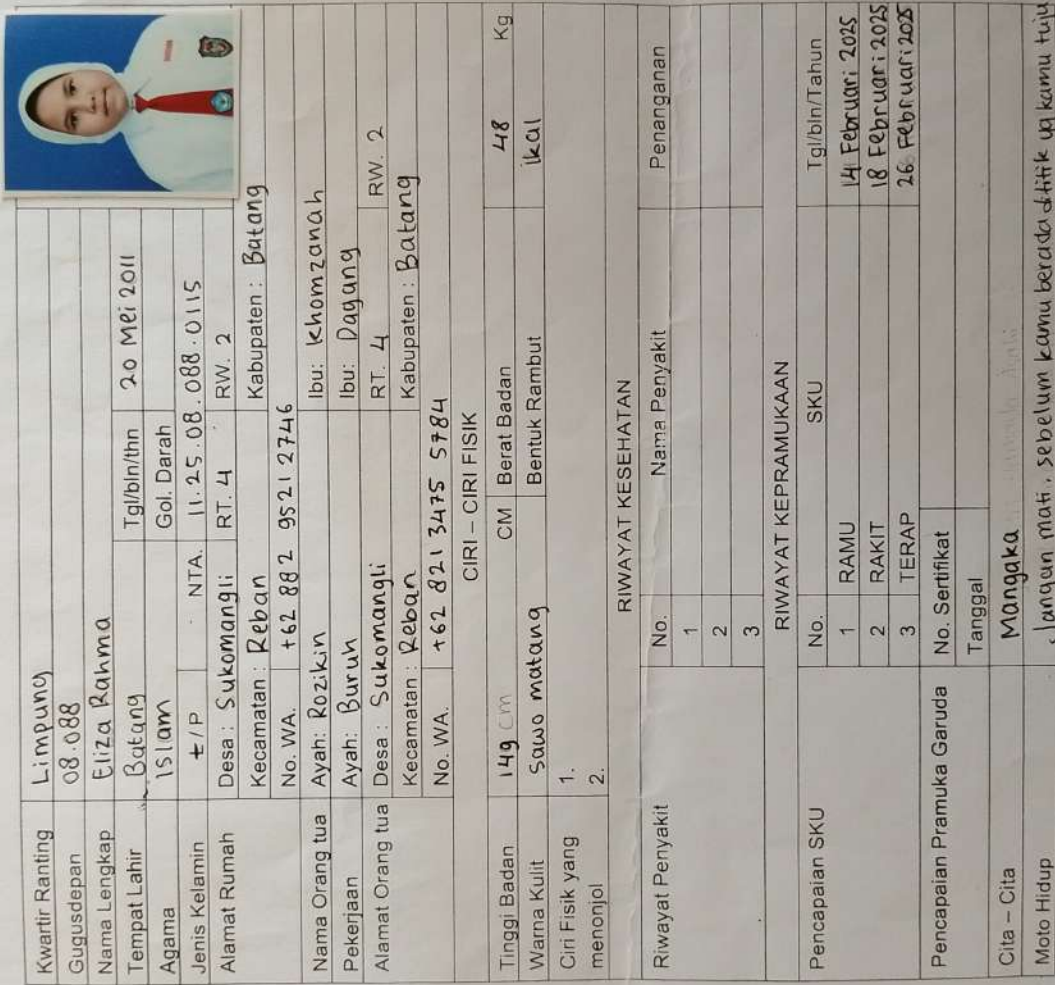 Kwartir Ranting Limpung
Gugusdepan 08.088
Nama Lengkap Eliza Rahma
Tempat Lahir Batang Tgl/bln/thn 20 Mei 2011
Agama Islam Gol. Darah
Jenis Kelamin L/P NTA. 11.25.08.088.0115
Alamat Rumah Desa : Sukomangli RT. 4 RW. 2
Kecamatan : Reban Kabupaten : Batang
No. WA. +62 882 9521 2746
Nama Orang tua Ayah: Rozikin Ibu: Khomzanah
Pekerjaan Ayah: Buruh Ibu: Dagang
Alamat Orang tua Desa : Sukomangli RT. 4 RW. 2
Kecamatan : Reban Kabupaten : Batang
No. WA. +62 821 3475 5784
CIRI – CIRI FISIK
Tinggi Badan 149 cm CM Berat Badan 48 Kg
Warna Kulit Sawo matang Bentuk Rambut ikal
Ciri Fisik yang 1.
menonjol 2.
RIWAYAT KESEHATAN
Riwayat Penyakit No. Nama Penyakit Penanganan
1
2
3
RIWAYAT KEPRAMUKAAN
Pencapaian SKU No. SKU Tgl/bln/Tahun
1 RAMU 14 Februari 2025
2 RAKIT 18 Februari 2025
3 TERAP 26 Februari 2025
Pencapaian Pramuka Garuda No. Sertifikat
Tanggal
Cita – Cita Mangaka
Moto Hidup Jangan mati, sebelum kamu berada dititik yg kamu tuju